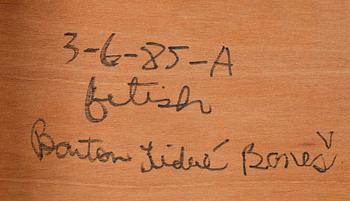 3-6-85-A
fetish
Barton Lidicé Beneš